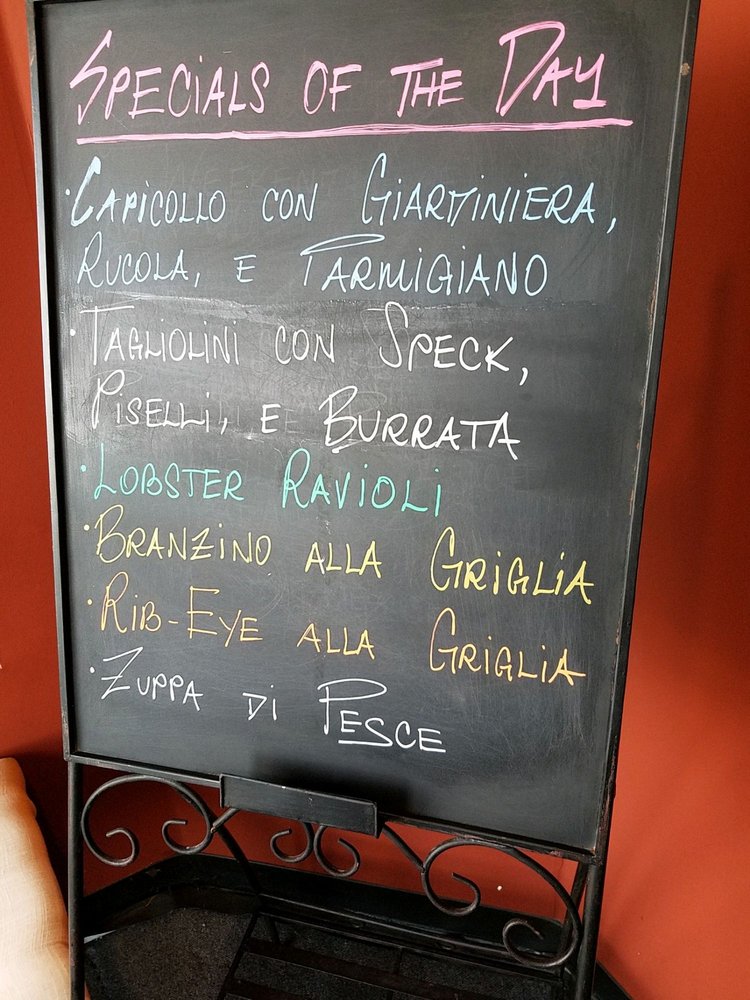 SPECIALS OF THE DAY
·CAPICOLLO CON GIARDINIERA,
RUCOLA, E PARMIGIANO
·TAGLIOLINI CON SPECK,
PISELLI, E BURRATA
·LOBSTER RAVIOLI
·BRANZINO ALLA GRIGLIA
·RIB-EYE ALLA GRIGLIA
·ZUPPA DI PESCE